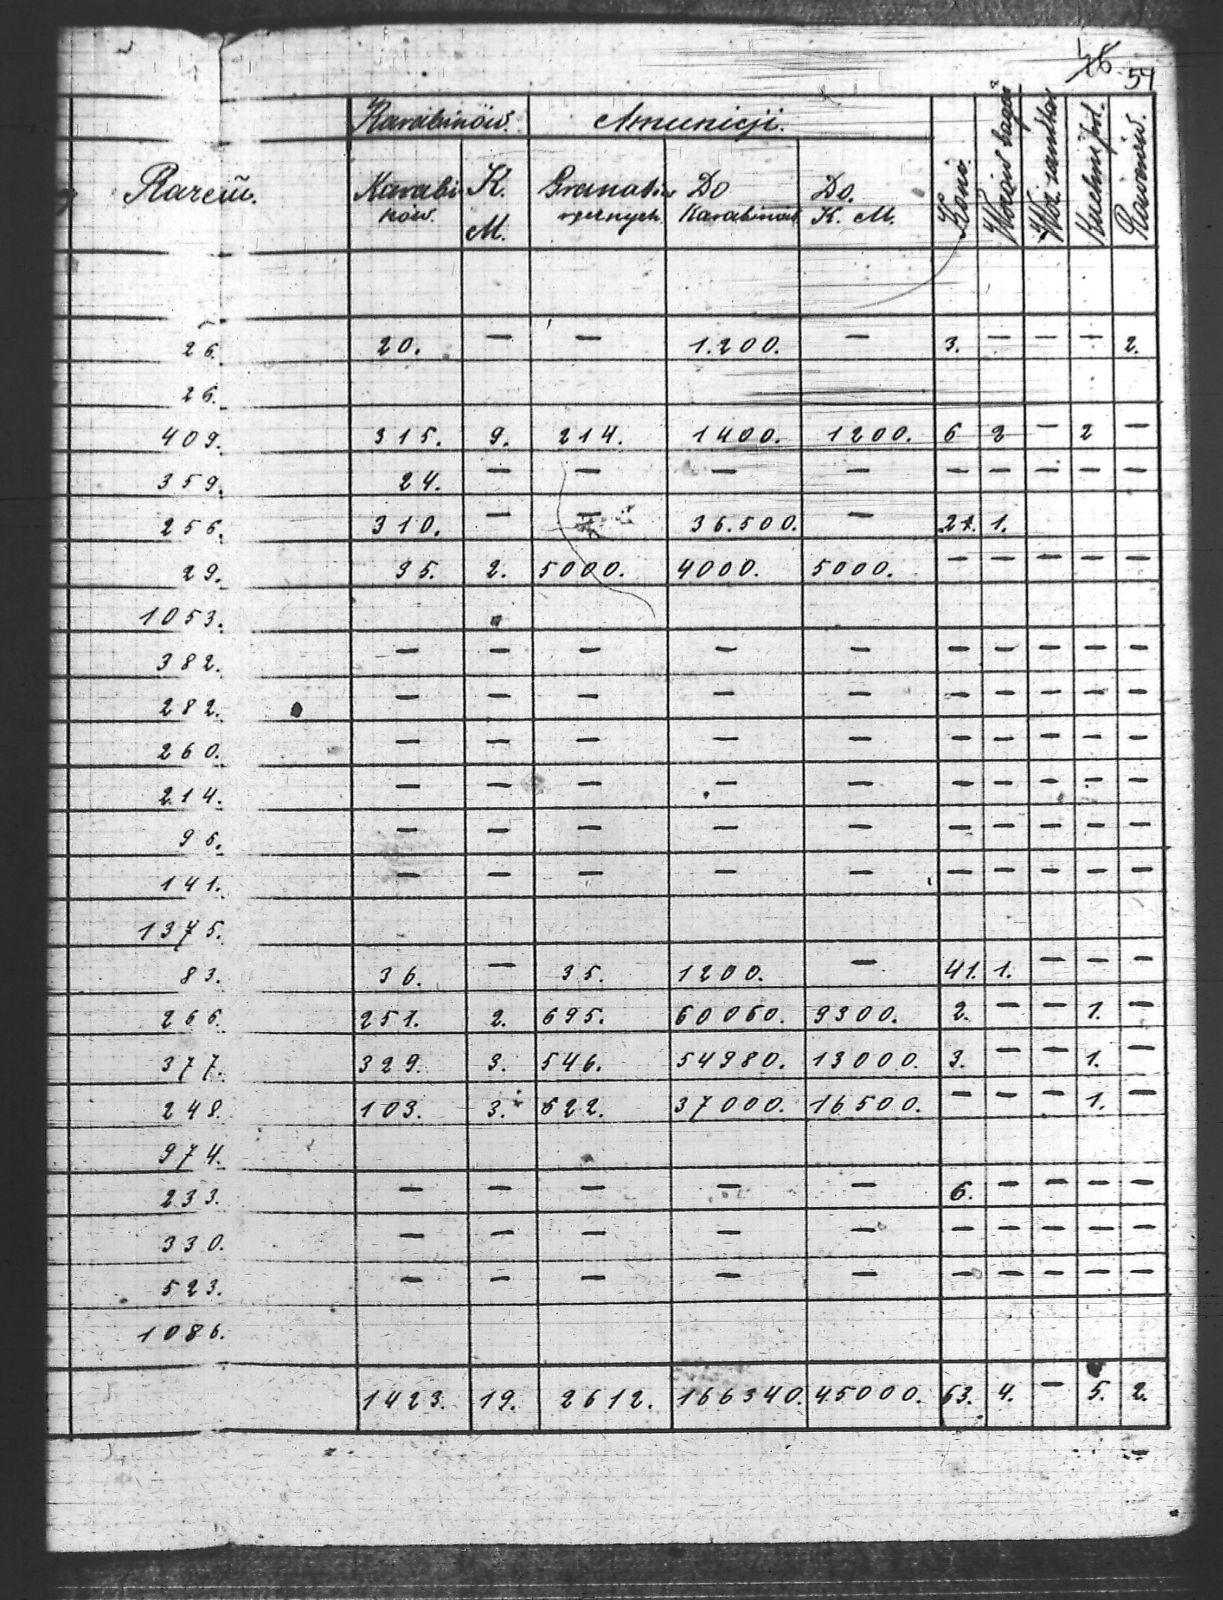 54
Karabinów. Amunicji.
Razem. Karabi nów. K. M. Granatów ręcznych. Do Karabinów Do. K. M. Koni. Wozów Kuchni pol. Rowerów.
26. 20. — — 1.200. — 3. — — — 2.
26.
409. 315. 9. 214. 1400. 1200. 6 2 — 2 —
359. 24. — — — — — — — — —
256. 310. — — 36.500. — 1.
29. 35. 2. 5000. 4000. 5000. — — — — —
1053.
382. — — — — — — — — — —
282. — — — — — — — — — —
260. — — — — — — — — — —
214. — — — — — — — — — —
96. — — — — — — — — — —
141. — — — — — — — — — —
1375.
83. 36. — 35. 1200. — 41. 1. — — —
266. 251. 2. 695. 60060. 9300. 2. — — 1. —
377. 329. 3. 546. 54980. 13000. 3. — — 1. —
248. 103. 3. 622. 37000. 16500. — — — 1. —
974.
233. — — — — — 6. — — — —
330. — — — — — — — — — —
523. — — — — — — — — — —
1086.
1423. 19. 2612. 166340. 45000. 63. 4. — 5. 2.